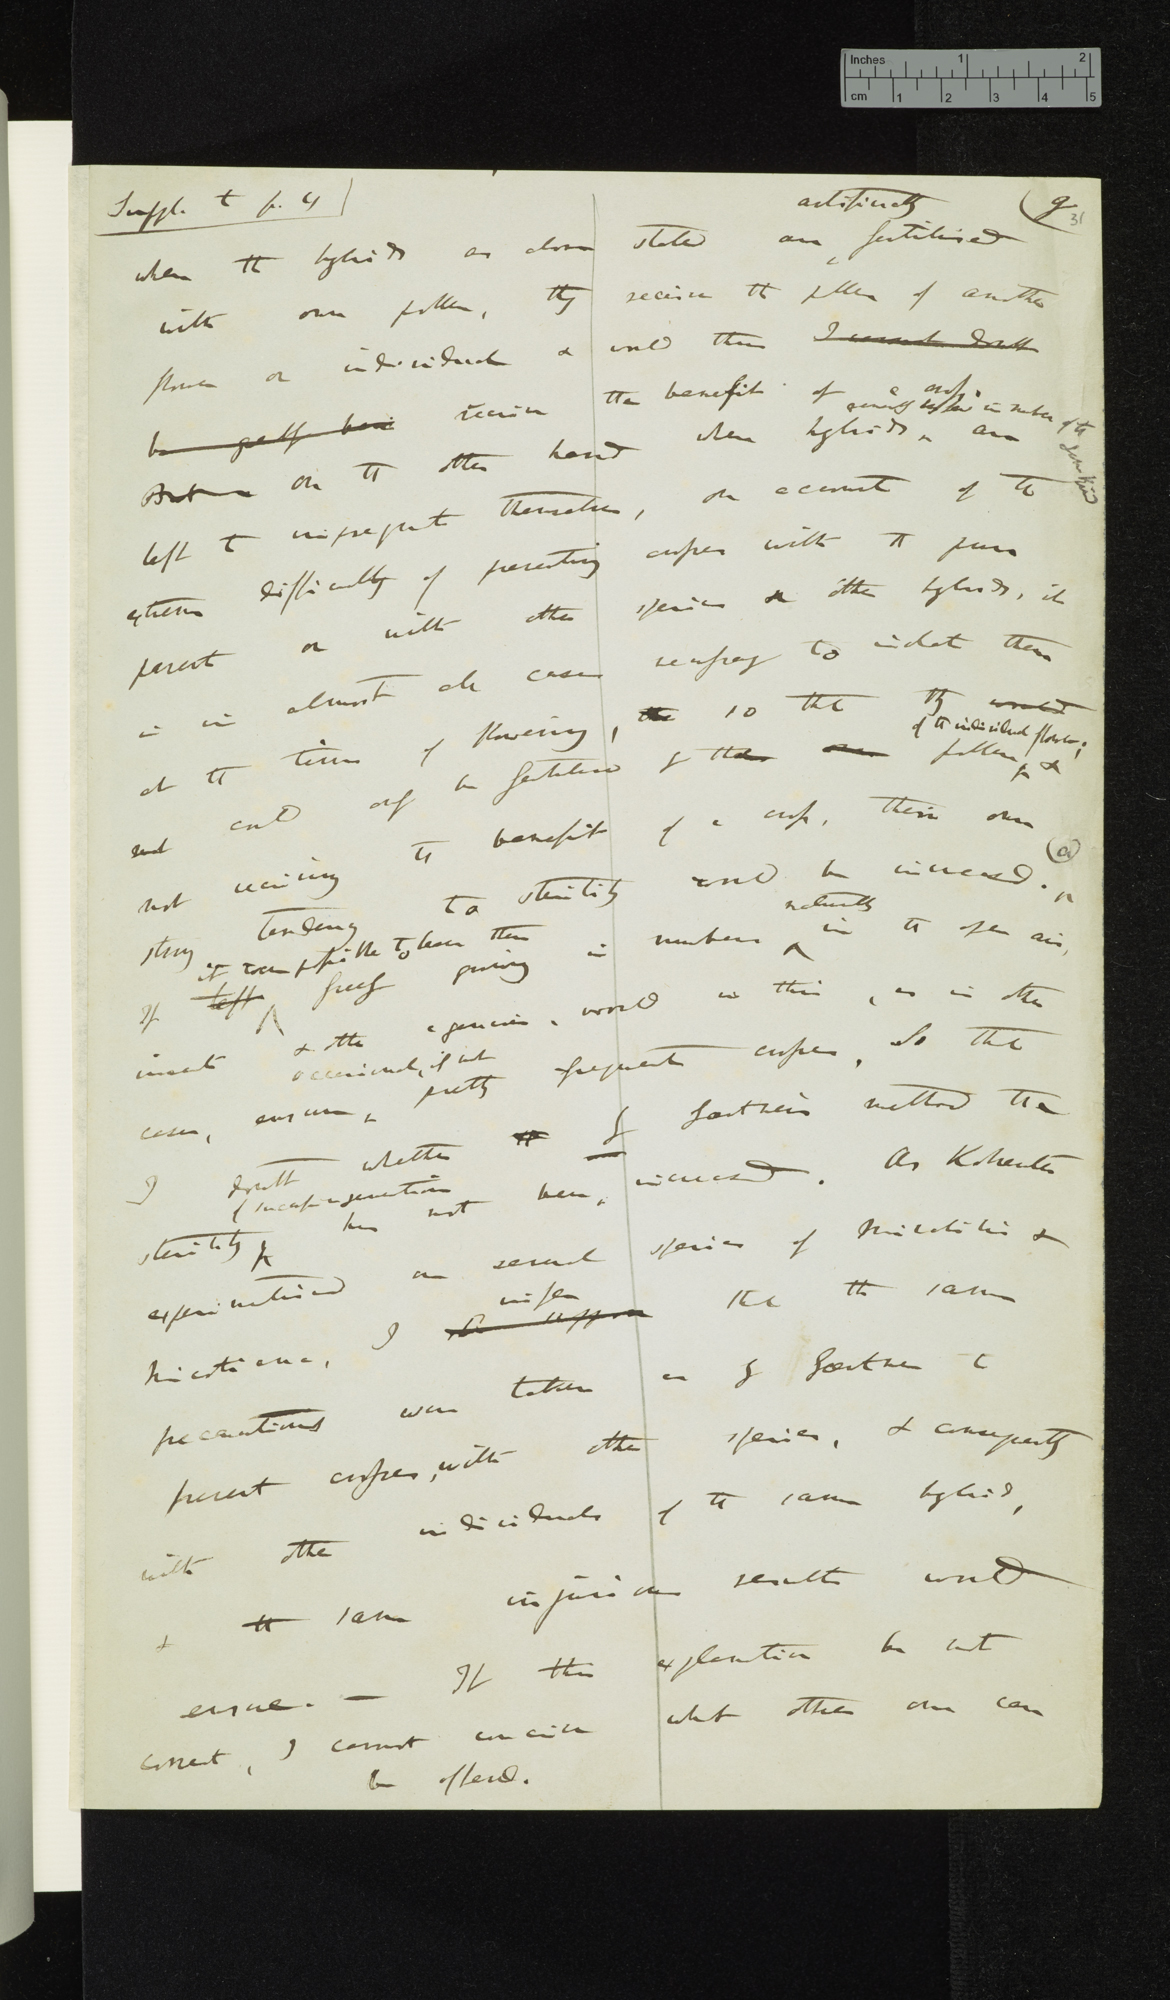 Suppl. to p. 4
(g
31
artificially
when the hybrids as above stated are ‸ fertilised
with own pollen, they receive the pollen of another
flower or individual & would thus I cannot doubt
be greatly bene receive the benefit of a cross.
But on the other hand when hybrids, are
left to impregnate themselves, on account of the
extreme difficulty of preventing crosses with the pure
parent or with other species or other hybrids, it
is in almost all cases necessary to isolate them
at the time of flowering, so that they would
of the individual flower;
and could only be fertilised by their own pollen & 
not receiving the benefit of a cross, their own
(a)
strong tendency to sterility would be increased.
it were possible to leave them
naturally
If left ‸ freely growing in numbers ‸ in the open air,
insects & other agencies, would in this, as in other
occasional, if not
cases, ensure, pretty frequent crosses, So that
I doubt whether by Gærtner's method the
of such generations
sterility has not been, increased. As Kölreuter
experimentised on several species of Mirabilis &
infer
Nicotiana, I suppose that the same
precautions were taken as by Gærtner to
prevent crosses, with other species, & consequently
with other individuals of the same hybrid,
& the same injurious results would
ensue. — If this explanation be not
correct, I cannot conceive what other one can
be offered.